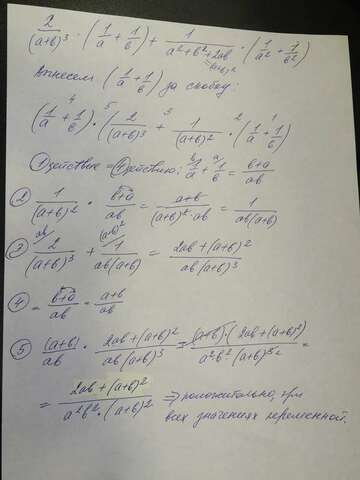 2/(a+b)³ · (1/a + 1/b) + 1/(a²+b²+2ab) · (1/a² + 1/b²)
=(a+b)²
Вынесем (1/a + 1/b) за скобку:
4 5 3 2 1
(1/a + 1/b) · (2/(a+b)³ + 1/(a+b)² · (1/a + 1/b))
① действие = ④ действию: 1/a + 1/b = (b+a)/ab
② 1/(a+b)² · (b+a)/ab = (a+b)/((a+b)²·ab) = 1/(ab(a+b))
③ 2/(a+b)³ + 1/(ab(a+b)) = (2ab+(a+b)²)/(ab(a+b)³)
④ = (b+a)/ab = (a+b)/ab
⑤ (a+b)/ab · (2ab+(a+b)²)/(ab(a+b)³) = ((a+b)·(2ab+(a+b)²))/(a²b²(a+b)³ ²) =
= (2ab+(a+b)²)/(a²b²·(a+b)²) ⇒ положительно, при
всех значениях переменной.